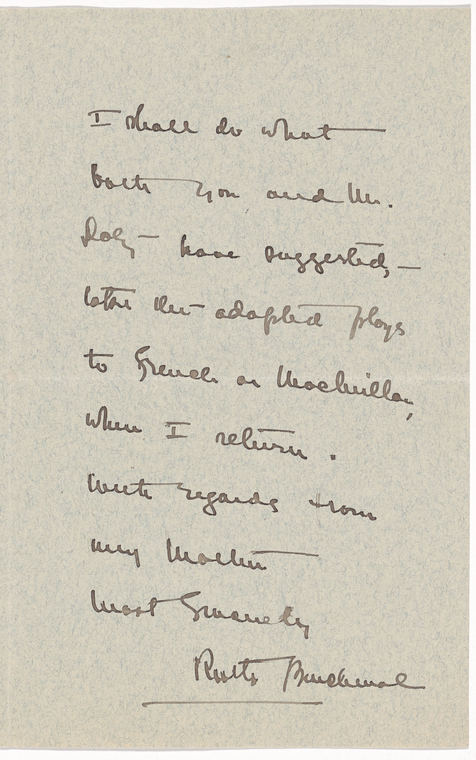 I shall do what
both you and Mr.
Daly have suggested, —
take the adapted plays
to French or Macmillan,
when I return.
With regards from
my Mother
Most Sincerely
Ruth